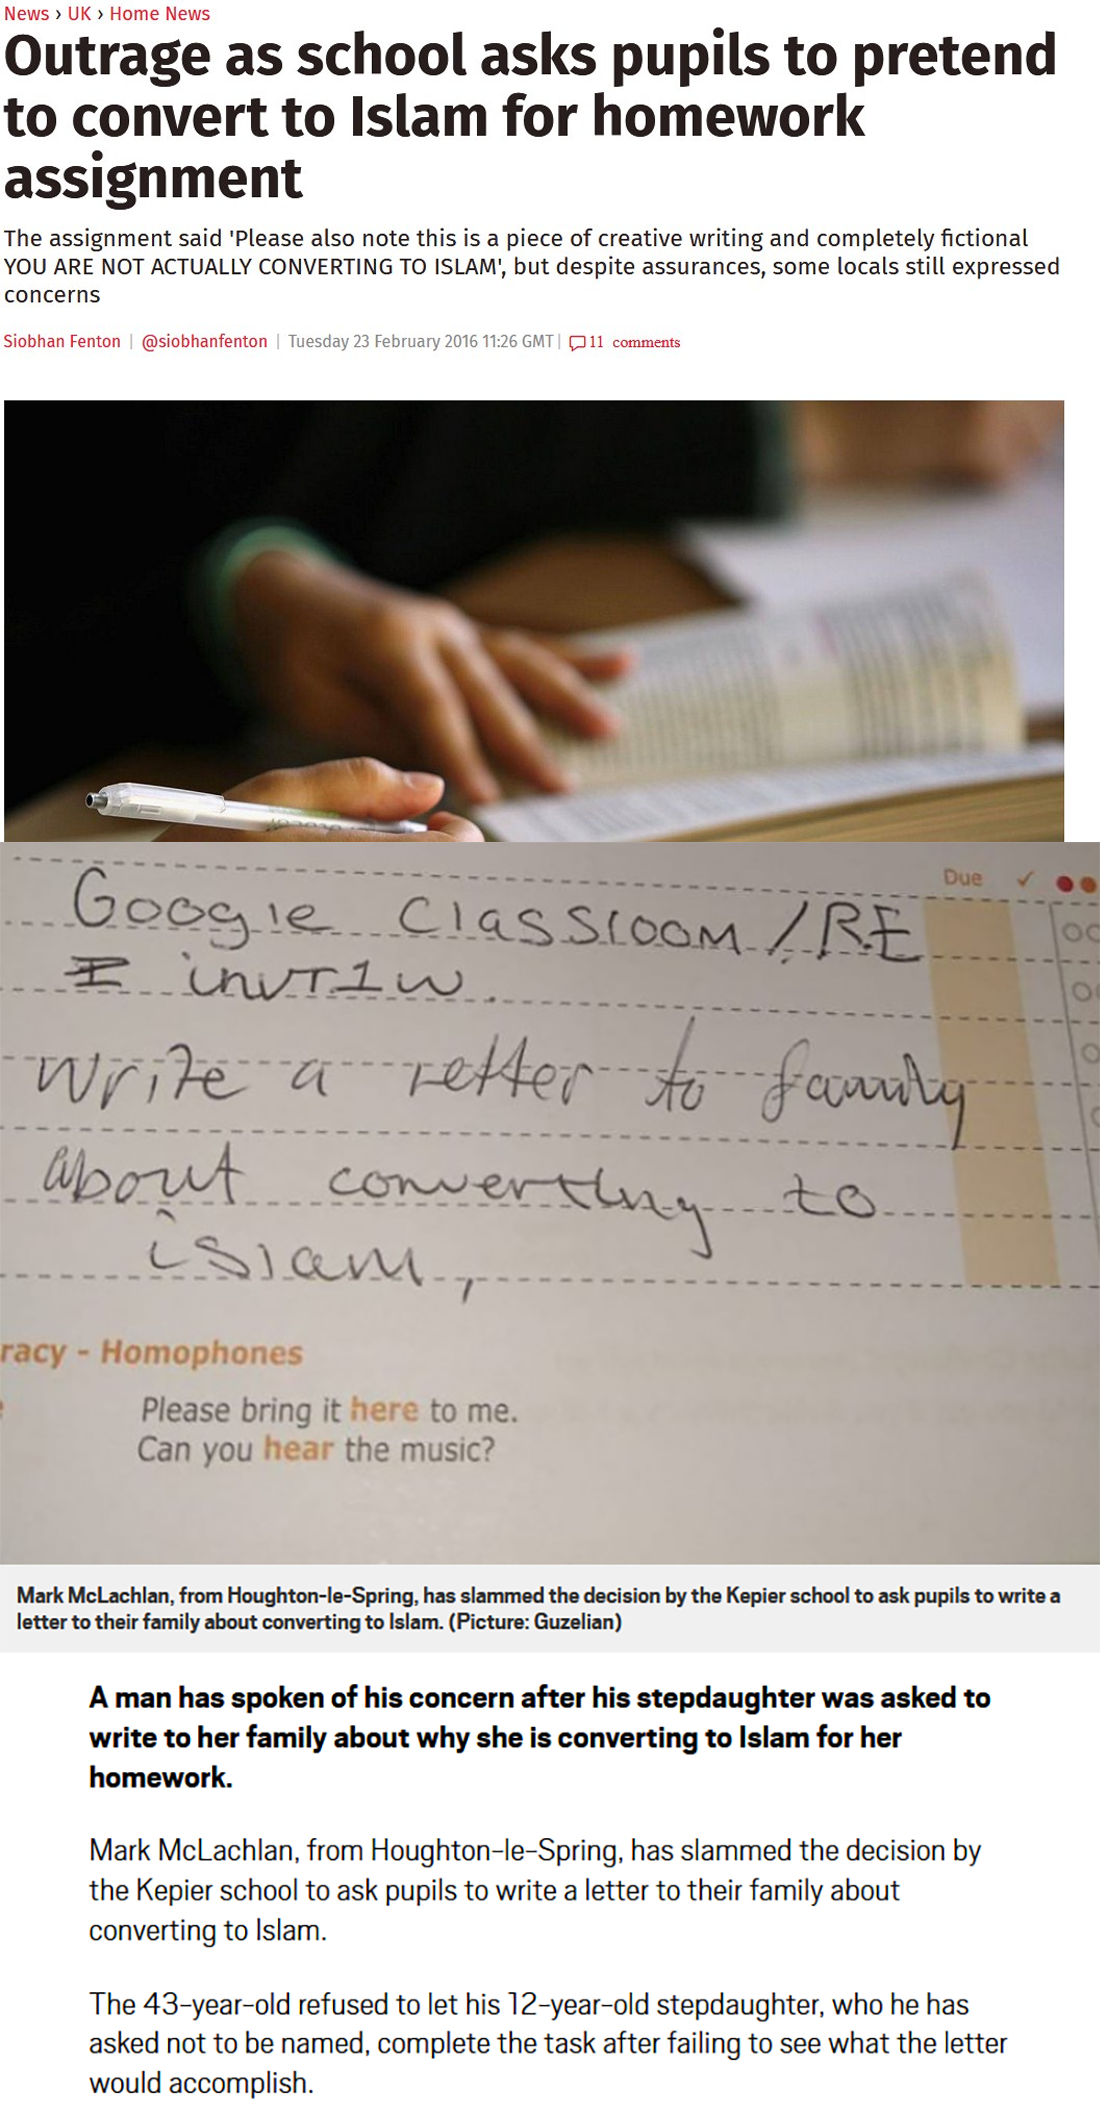 News › UK › Home News
Outrage as school asks pupils to pretend
to convert to Islam for homework
assignment
The assignment said 'Please also note this is a piece of creative writing and completely fictional
YOU ARE NOT ACTUALLY CONVERTING TO ISLAM', but despite assurances, some locals still expressed
concerns
Siobhan Fenton | @siobhanfenton | Tuesday 23 February 2016 11:26 GMT | 11 comments
Due ✓
Google Classroom/RE
write a letter to family
about converting to
islam,
racy - Homophones
Please bring it here to me.
Can you hear the music?
Mark McLachlan, from Houghton-le-Spring, has slammed the decision by the Kepier school to ask pupils to write a
letter to their family about converting to Islam. (Picture: Guzelian)
A man has spoken of his concern after his stepdaughter was asked to
write to her family about why she is converting to Islam for her
homework.
Mark McLachlan, from Houghton-le-Spring, has slammed the decision by
the Kepier school to ask pupils to write a letter to their family about
converting to Islam.
The 43-year-old refused to let his 12-year-old stepdaughter, who he has
asked not to be named, complete the task after failing to see what the letter
would accomplish.